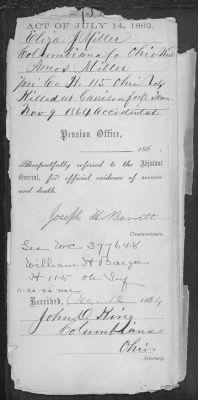 ACT OF JULY 14, 1862.
Eliza J. Miller
Columbiana Co Ohio Wid
Amos Miller
Pri Co H. 115 Ohio Vols
Killed at
Nov 9 1864 Accidental
Pension Office,
186
Respectfully referred to the Adjutant
General, for official evidence of service
and death.
Joseph H Barrett
Commissioner.
See WC 377648
William H Barger
H 115 O Inf
Received, 186
John Q King
Columbiana
Ohio
Attorney.